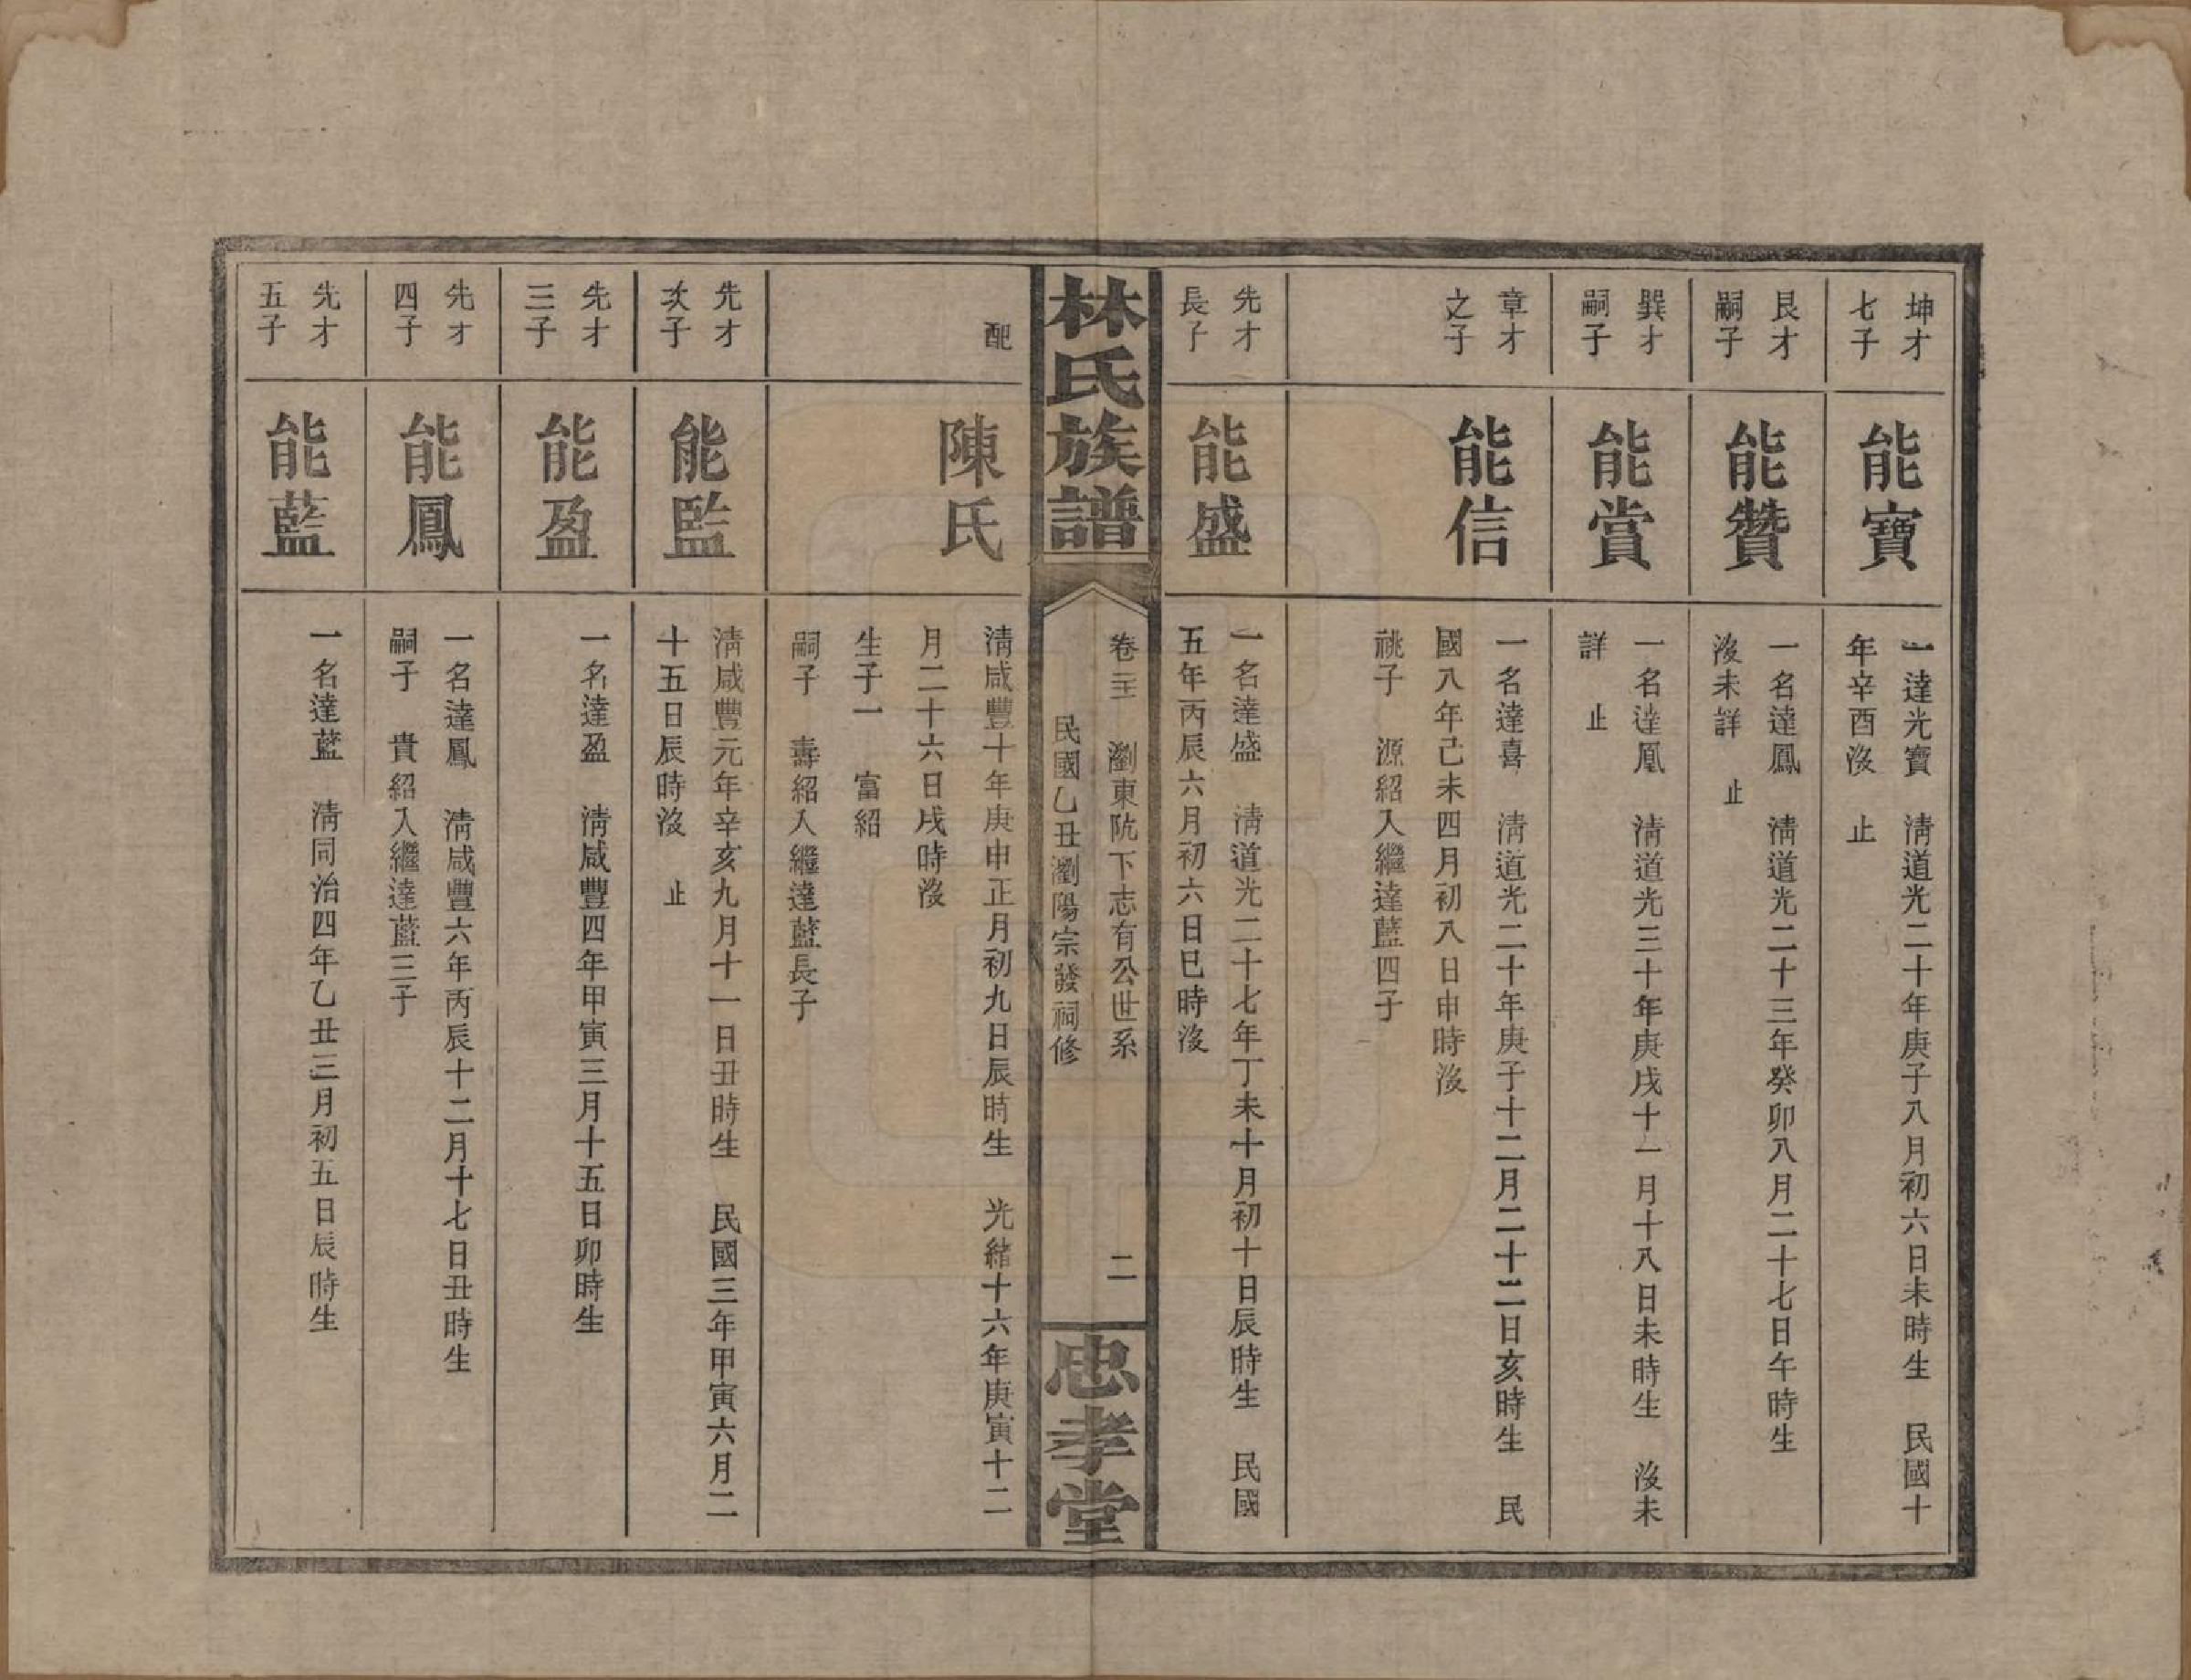 坤才
七子
能寶
一達光寶　清道光二十年庚子八月初六日未時生　民國十
年辛酉沒　止
艮才
嗣子
能贊
一名達鳳　清道光二十三年癸卯八月二十七日午時生
沒未詳　止
巽才
嗣子
能賞
一名達凰　清道光三十年庚戌十一月十八日未時生　沒未
詳　止
章才
之子
能信
一名達喜　清道光二十年庚子十二月二十二日亥時生　民
國八年己未四月初八日申時沒
祧子　源紹入繼達藍四子
先才
長子
能盛
一名達盛　清道光二十七年丁未十月初十日辰時生　民國
五年丙辰六月初六日巳時沒
林氏族譜
卷　瀏東阬下志有公世系　二
民國乙丑瀏陽宗發祠修
忠孝堂
配
陳氏
清咸豐十年庚申正月初九日辰時生　光緒十六年庚寅十二
月二十六日戌時沒
生子一　富紹
嗣子　壽紹入繼達藍長子
先才
次子
能監
清咸豐元年辛亥九月十一日丑時生　民國三年甲寅六月二
十五日辰時沒　止
先才
三子
能盈
一名達盈　清咸豐四年甲寅三月十五日卯時生
先才
四子
能鳳
一名達鳳　清咸豐六年丙辰十二月十七日丑時生
嗣子　貴紹入繼達藍三子
先才
五子
能藍
一名達藍　清同治四年乙丑三月初五日辰時生